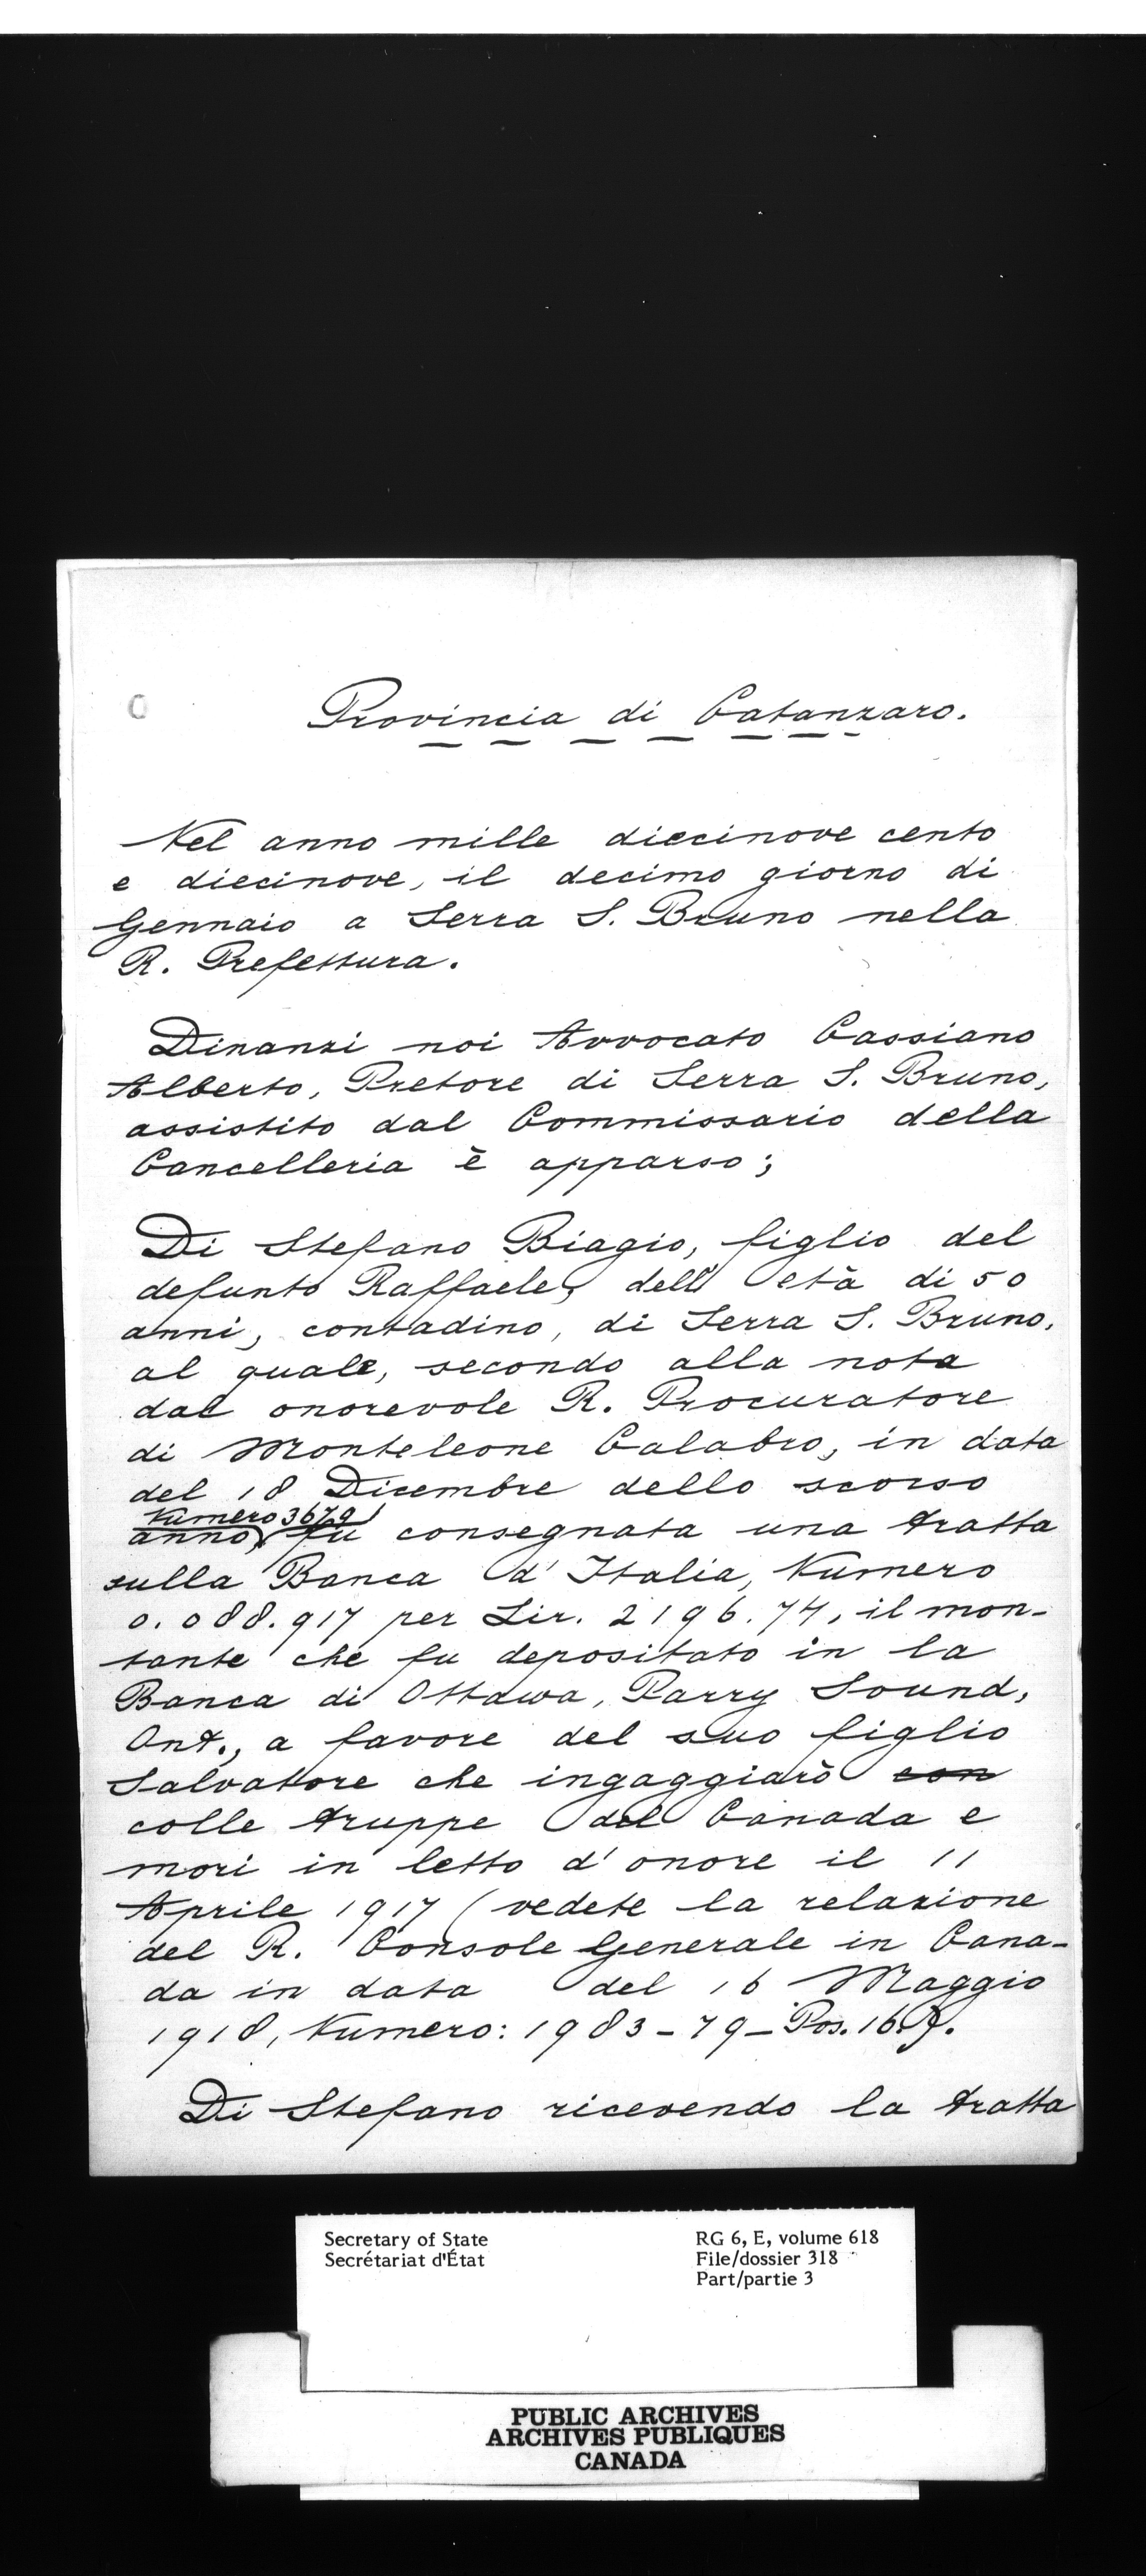 Provincia di Catanzaro.
Nel anno mille diecinove cento
e diecinove, il decimo giorno di
Gennaio a Serra S. Bruno nella
R. Prefettura.
Dinanzi noi Avvocato Cassiano
Alberto, Pretore di Serra S. Bruno,
assistito dal Commissario della
Cancelleria è apparso;
Di Stefano Biagio, figlio del
defunto Raffaele, dell' età di 50
anni, contadino, di Serra S. Bruno,
al quale, secondo alla nota
dal onorevole R. Procuratore
di Monteleone Calabro, in data
del 18 Dicembre dello scorso
Numero 3679
anno, fu consegnata una tratta
sulla Banca d' Italia, Numero
0.088.917 per Lir. 2196.74, il mon-
tante che fu depositato in la
Banca di Ottawa, Parry Sound,
Ont., a favore del suo figlio
Salvatore che ingaggiarò con
colle truppe del Canada e
mori in letto d' onore il 11
Aprile 1917 (vedete la relazione
del R. Console Generale in Cana-
da in data del 16 Maggio
1918, Numero: 1983-79-Pos. 16.
Di Stefano ricevendo la tratta
Secretary of State
Secrétariat d'État
RG 6, E, volume 618
File/dossier 318
Part/partie 3
PUBLIC ARCHIVES
ARCHIVES PUBLIQUES
CANADA